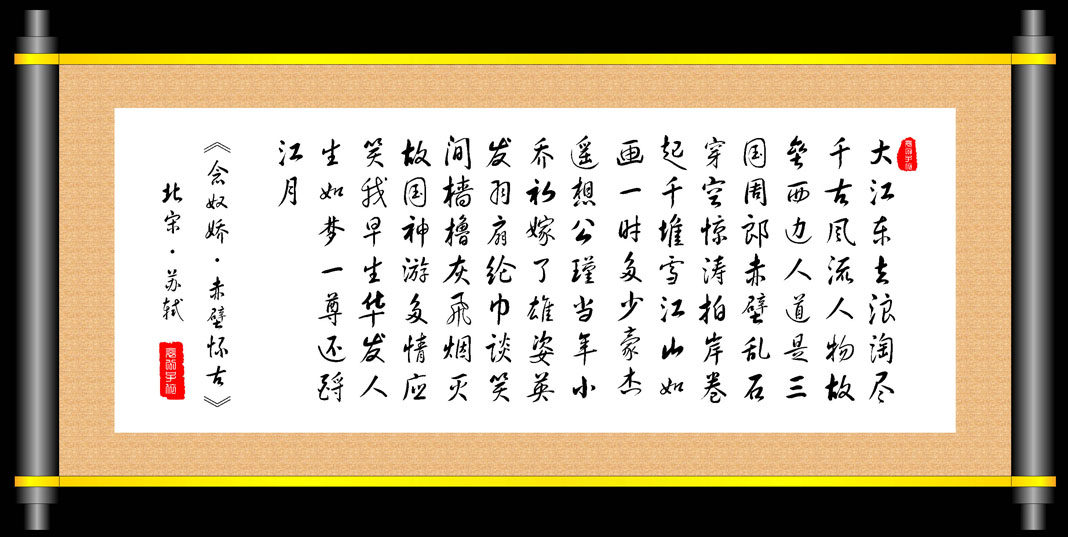 大江东去浪淘尽
千古风流人物故
垒西边人道是三
国周郎赤壁乱石
穿空惊涛拍岸卷
起千堆雪江山如
画一时多少豪杰
遥想公瑾当年小
乔初嫁了雄姿英
发羽扇纶巾谈笑
间樯橹灰飞烟灭
故国神游多情应
笑我早生华发人
生如梦一尊还酹
江月
《念奴娇·赤壁怀古》
北宋·苏轼